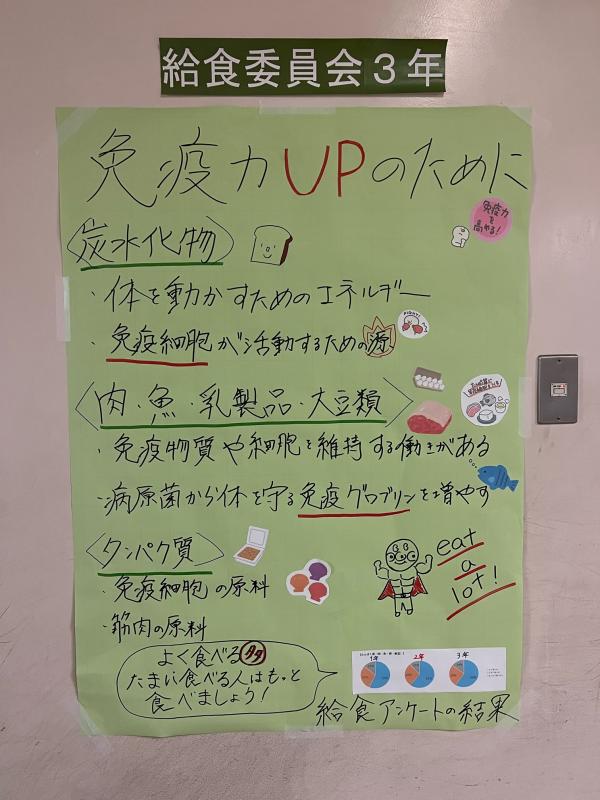 給食委員会3年
免疫力UPのために
免疫力
を
高める!
〈炭水化物〉
・体を動かすためのエネルギー
・免疫細胞が活動するための源
〈肉・魚・乳製品・大豆類〉
・免疫物質や細胞を維持する働きがある
・病原菌から体を守る免疫グロブリンを増やす
〈タンパク質〉
・免疫細胞の原料
・筋肉の原料
eat
a
lot!
よく食べる 多
たまに食べる人はもっと
食べましょう!
1年 2年 3年
給食アンケートの結果